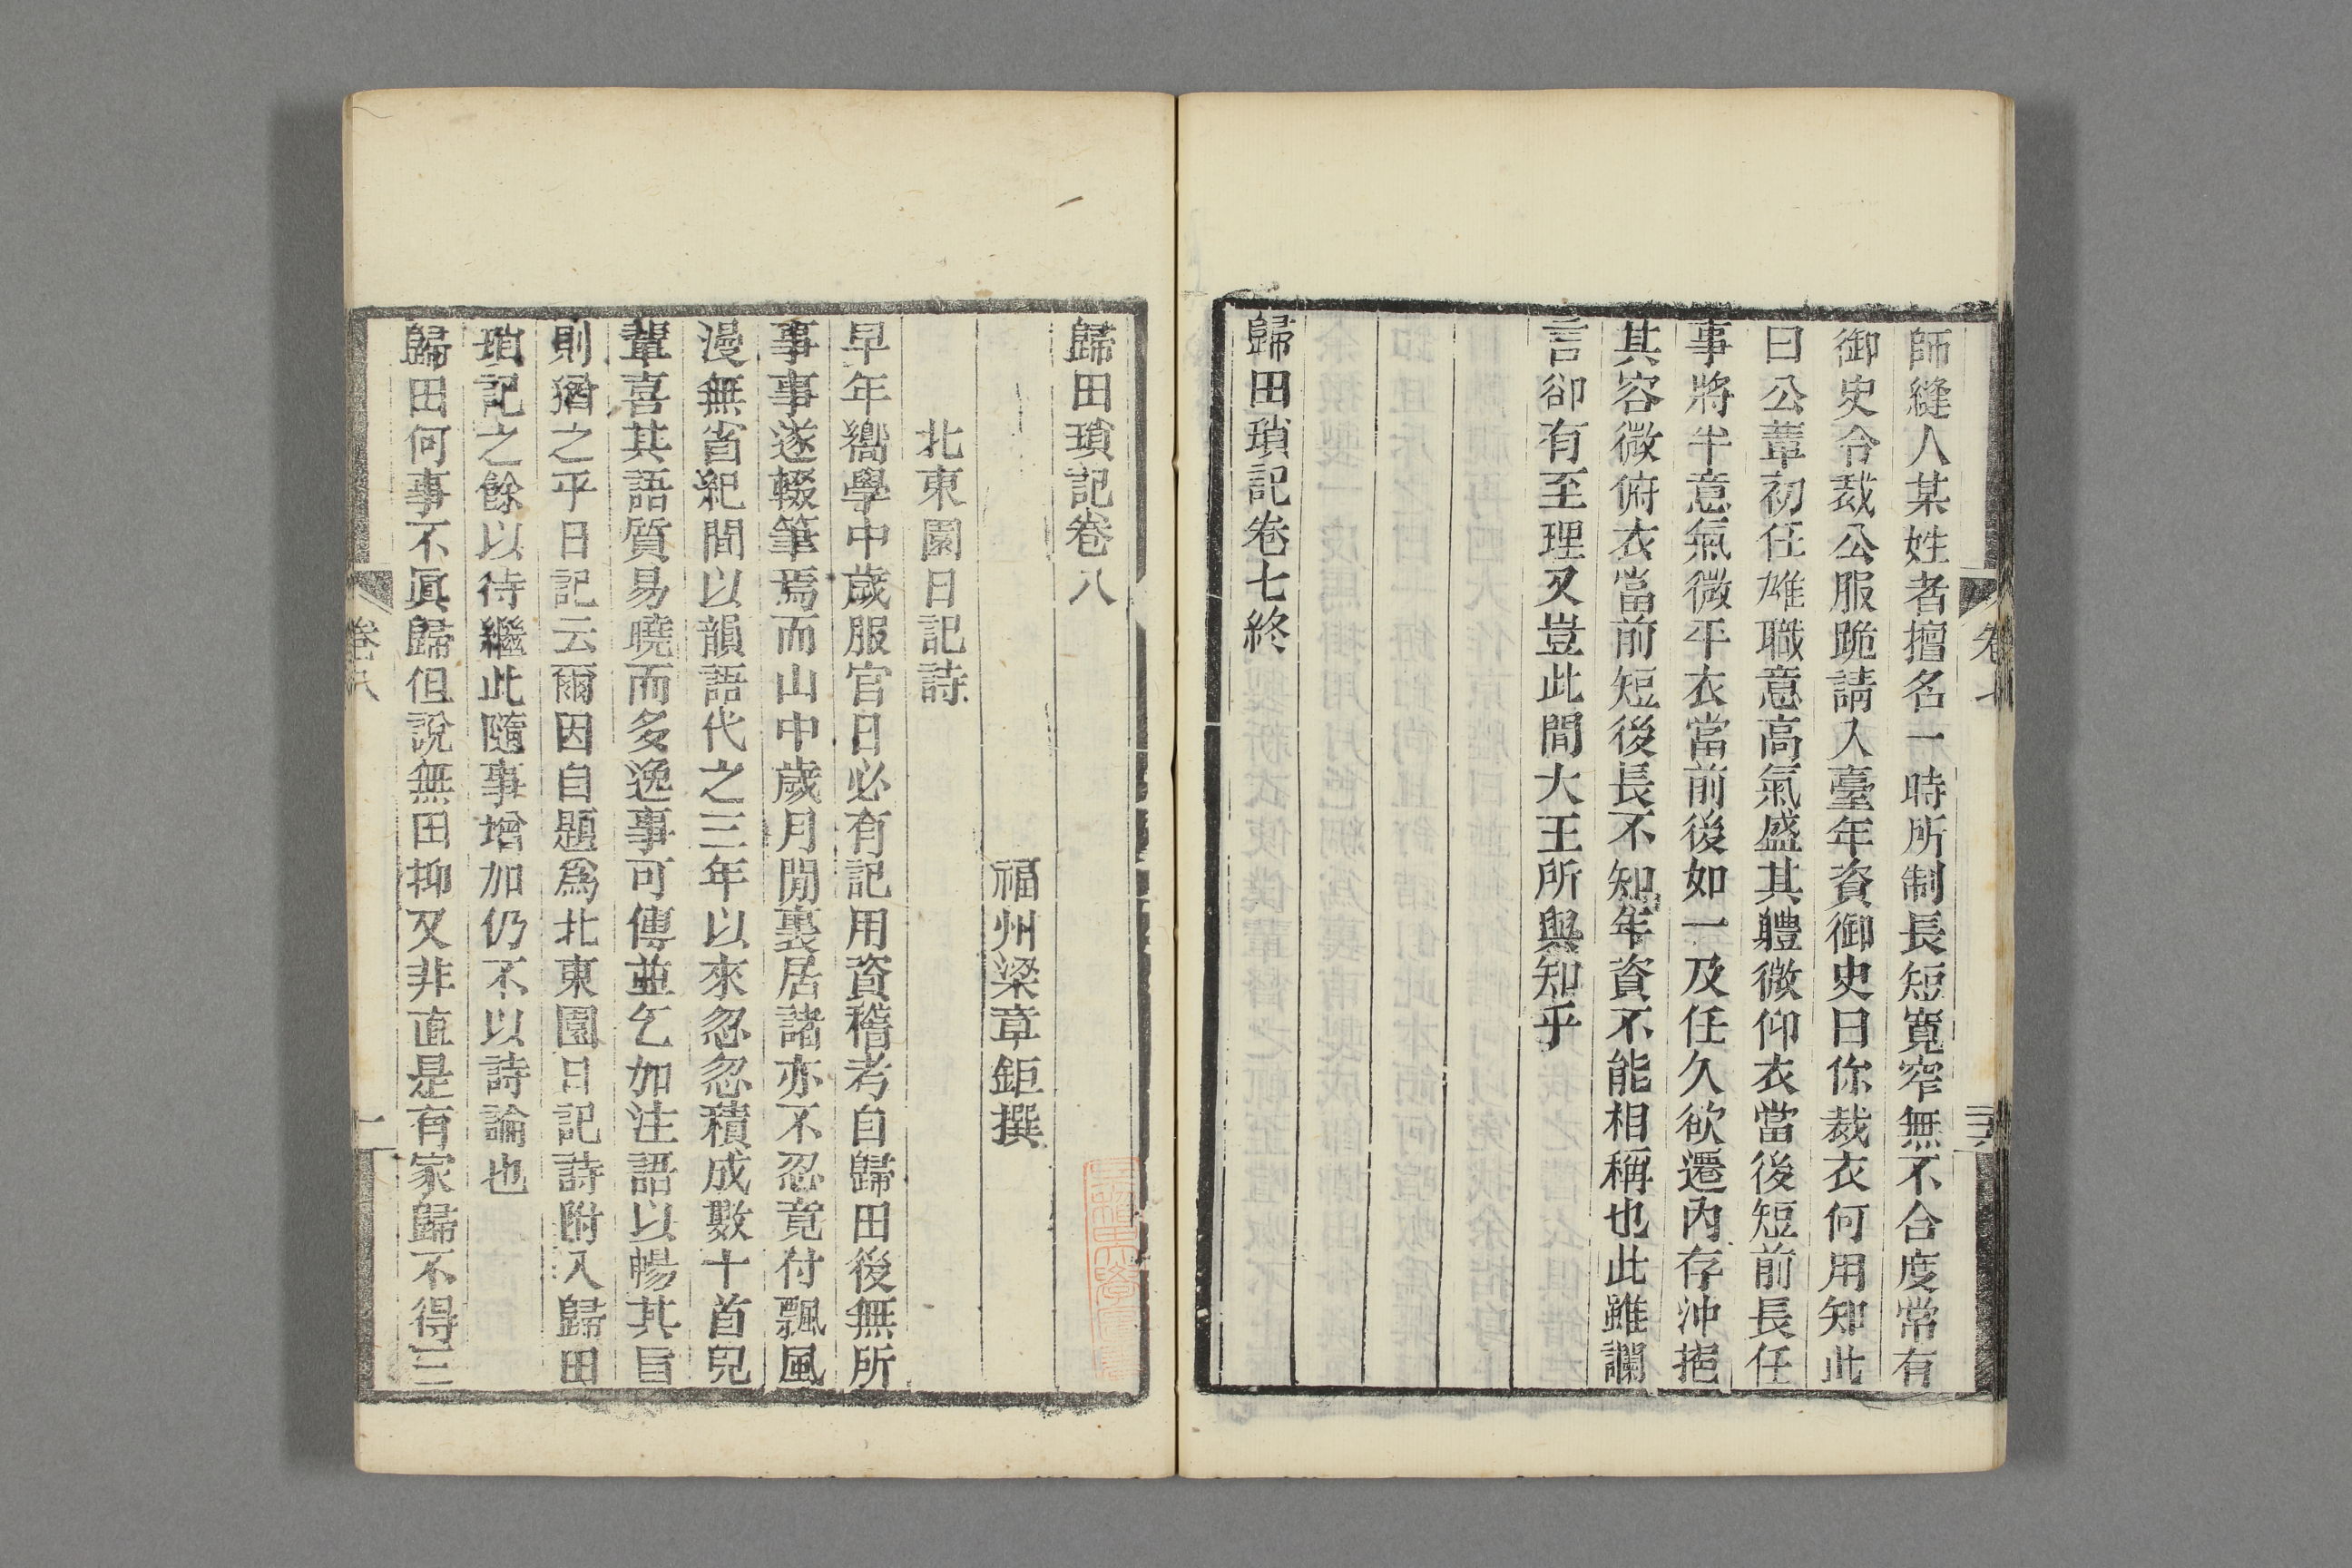 師縫人某姓者擅名一時所制長短寬窄無不合度常有
御史令裁公服跪請入臺年資御史曰你裁衣何用知此
曰公輩初任雄職意高氣盛其體微仰衣當後短前長任
事將半意氣微平衣當前後如一及任久欲遷內存沖挹
其容微俯衣當前短後長不知年資不能相稱也此雖讕
言卻有至理又豈此間大王所與知乎
歸田瑣記卷七終
歸田瑣記卷八
福州梁章鉅撰
北東園日記詩
早年嚮學中歲服官日必有記用資稽考自歸田後無所
事事遂輟筆焉而山中歲月閒裏居諸亦不忍竟付飄風
漫無省紀間以韻語代之三年以來忽忽積成數十首兒
輩喜其語質易曉而多逸事可傳並乞加注語以暢其旨
則猶之乎日記云爾因自題爲北東園日記詩附入歸田
瑣記之餘以待繼此隨事增加仍不以詩論也
歸田何事不眞歸但說無田抑又非直是有家歸不得三
卷八
一